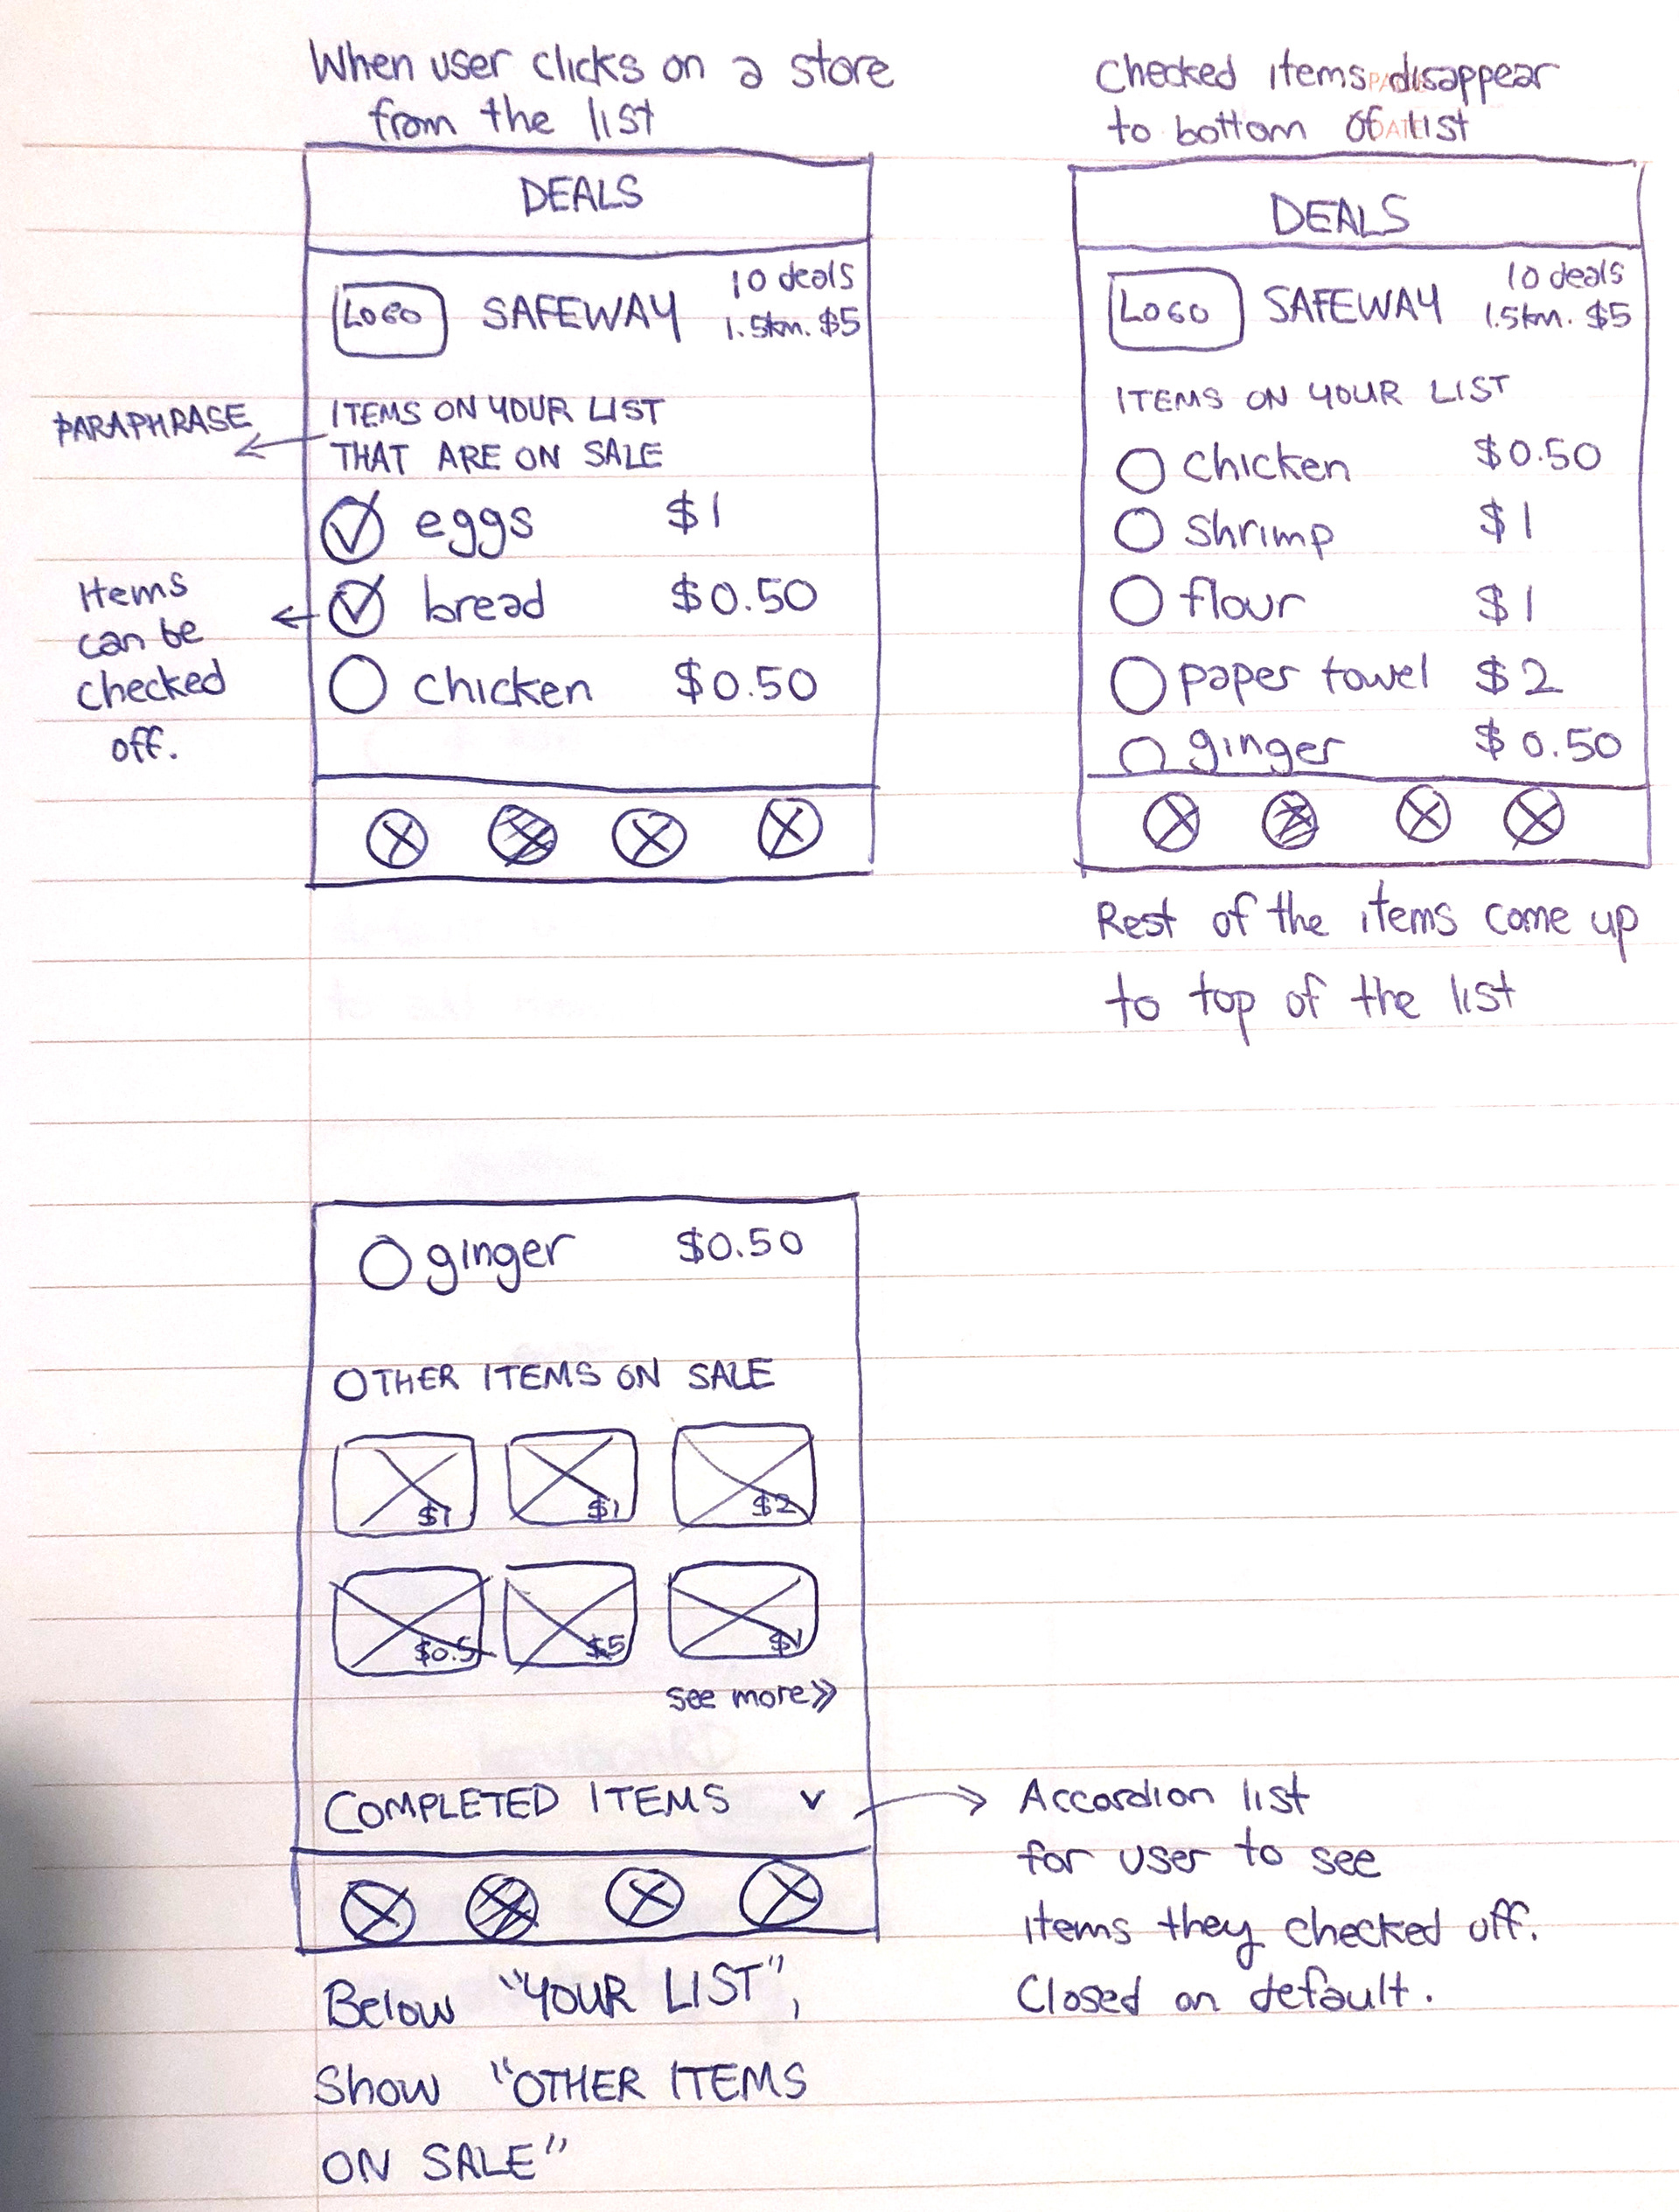 When user clicks on a store
from the list
DEALS
LOGO SAFEWAY 10 deals
1.5km. $5
PARAPHRASE
ITEMS ON YOUR LIST
THAT ARE ON SALE
eggs $1
bread $0.50
chicken $0.50
Items
can be
checked
off.
Checked items disappear
to bottom of list
DEALS
LOGO SAFEWAY 10 deals
1.5km. $5
ITEMS ON YOUR LIST
chicken $0.50
shrimp $1
flour $1
paper towel $2
ginger $0.50
Rest of the items come up
to top of the list
ginger $0.50
OTHER ITEMS ON SALE
$1 $1 $2
$0.5 $5 $1
see more>>
COMPLETED ITEMS v
Accordion list
for user to see
items they checked off.
Closed on default.
Below "YOUR LIST",
Show "OTHER ITEMS
ON SALE"